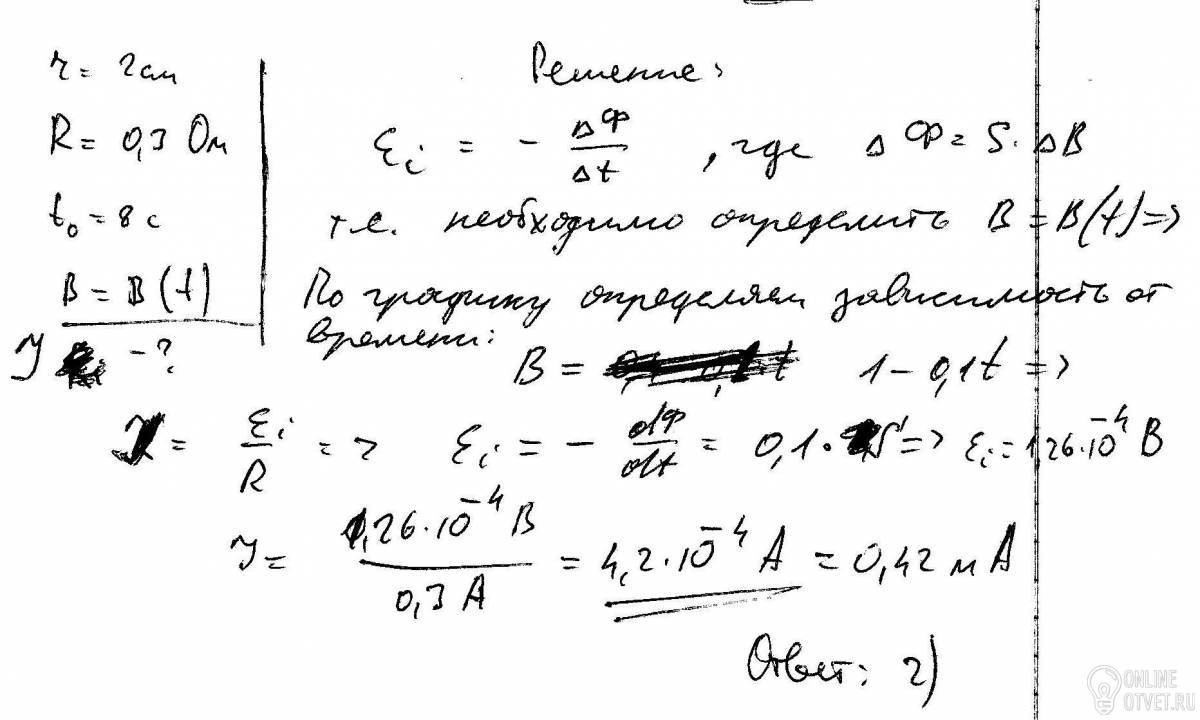 r = 2 см
R = 0,3 Ом
t₀ = 8 с
B = B(t)
I - ?
Решение:
εi = - ΔФ/Δt , где ΔФ = S·ΔB
т.е. необходимо определить B = B(t) =>
По графику определяем зависимость от
времени:
B = 1 - 0,1t =>
I = εi/R => εi = - dФ/dt = 0,1·S => εi = 1,26·10⁻⁴ В
I = 1,26·10⁻⁴ В / 0,3 А = 4,2·10⁻⁴ А = 0,42 мА
Ответ: 2)
ONLINE
OTVET.RU